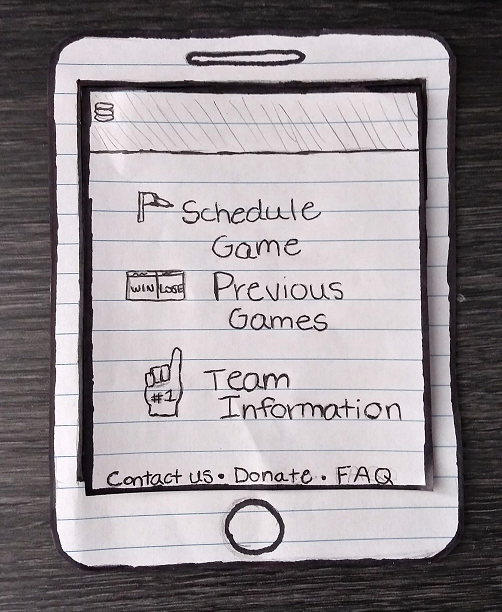 Schedule
Game
WIN LOSE
Previous
Games
#1
Team
Information
Contact us • Donate • FAQ